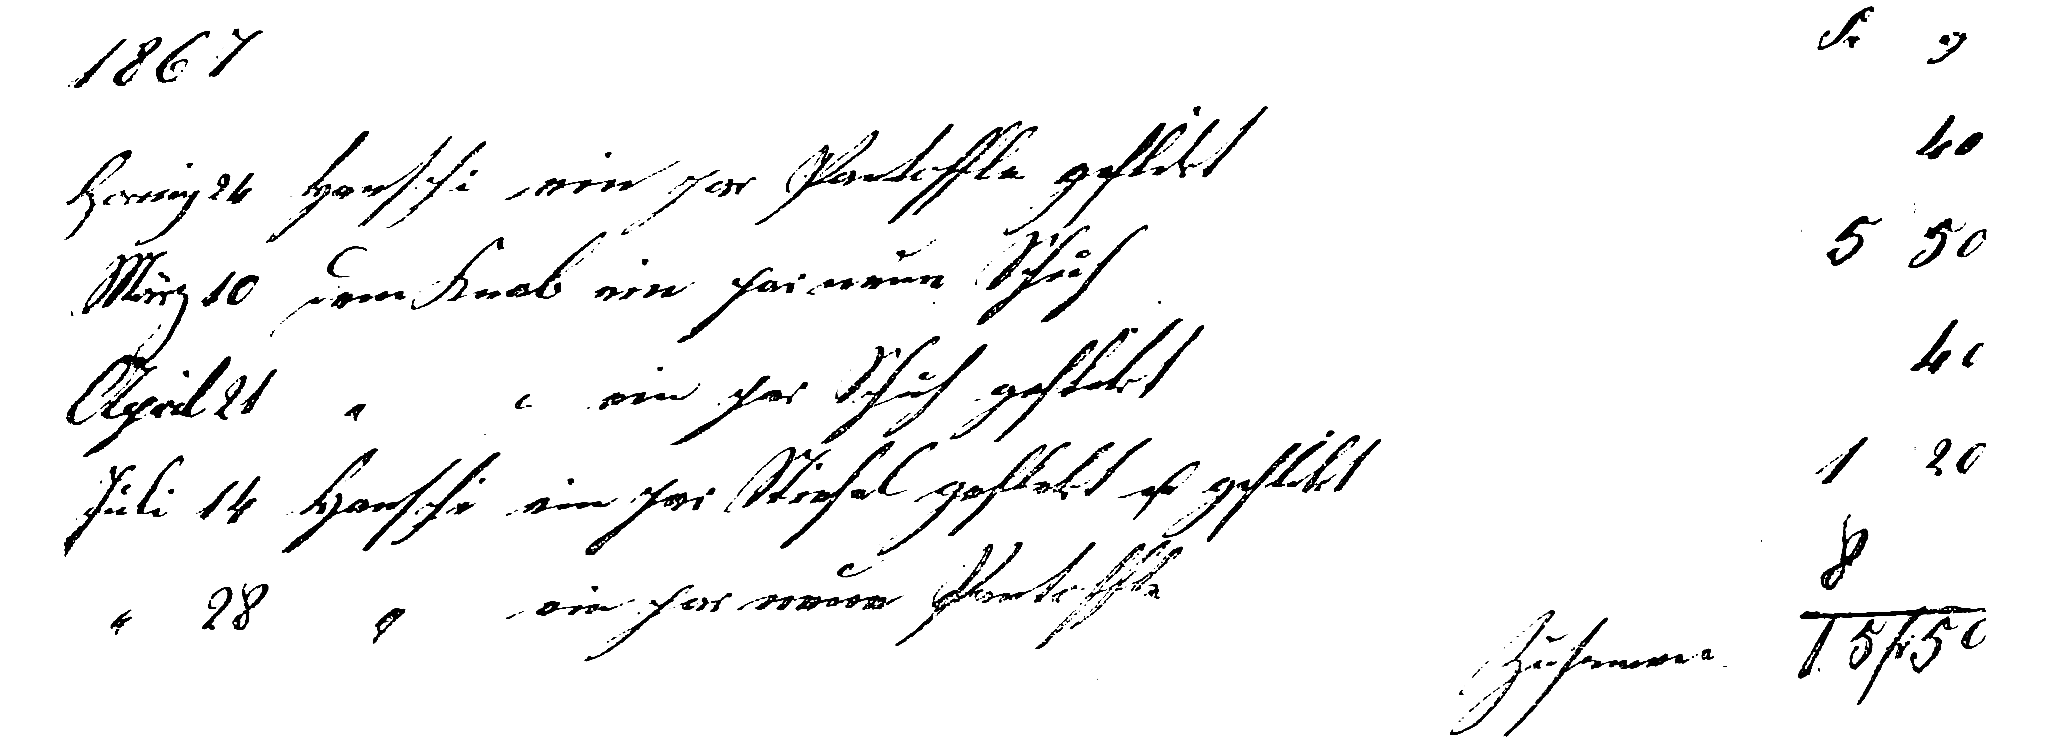 1867 Fr
Hornig 24 Hanschi ein par Pantoffle geflikt 40
März 10 dem Knab ein par neue Schuh 5 50
April 21 " " ein par Schuh geflekt 40
Juli 14 Hanschi ein par Stiefel geflekt & geflikt 1 20
" 28 " ein par neue Pantoffle 8
Zusamen 15 fr 50